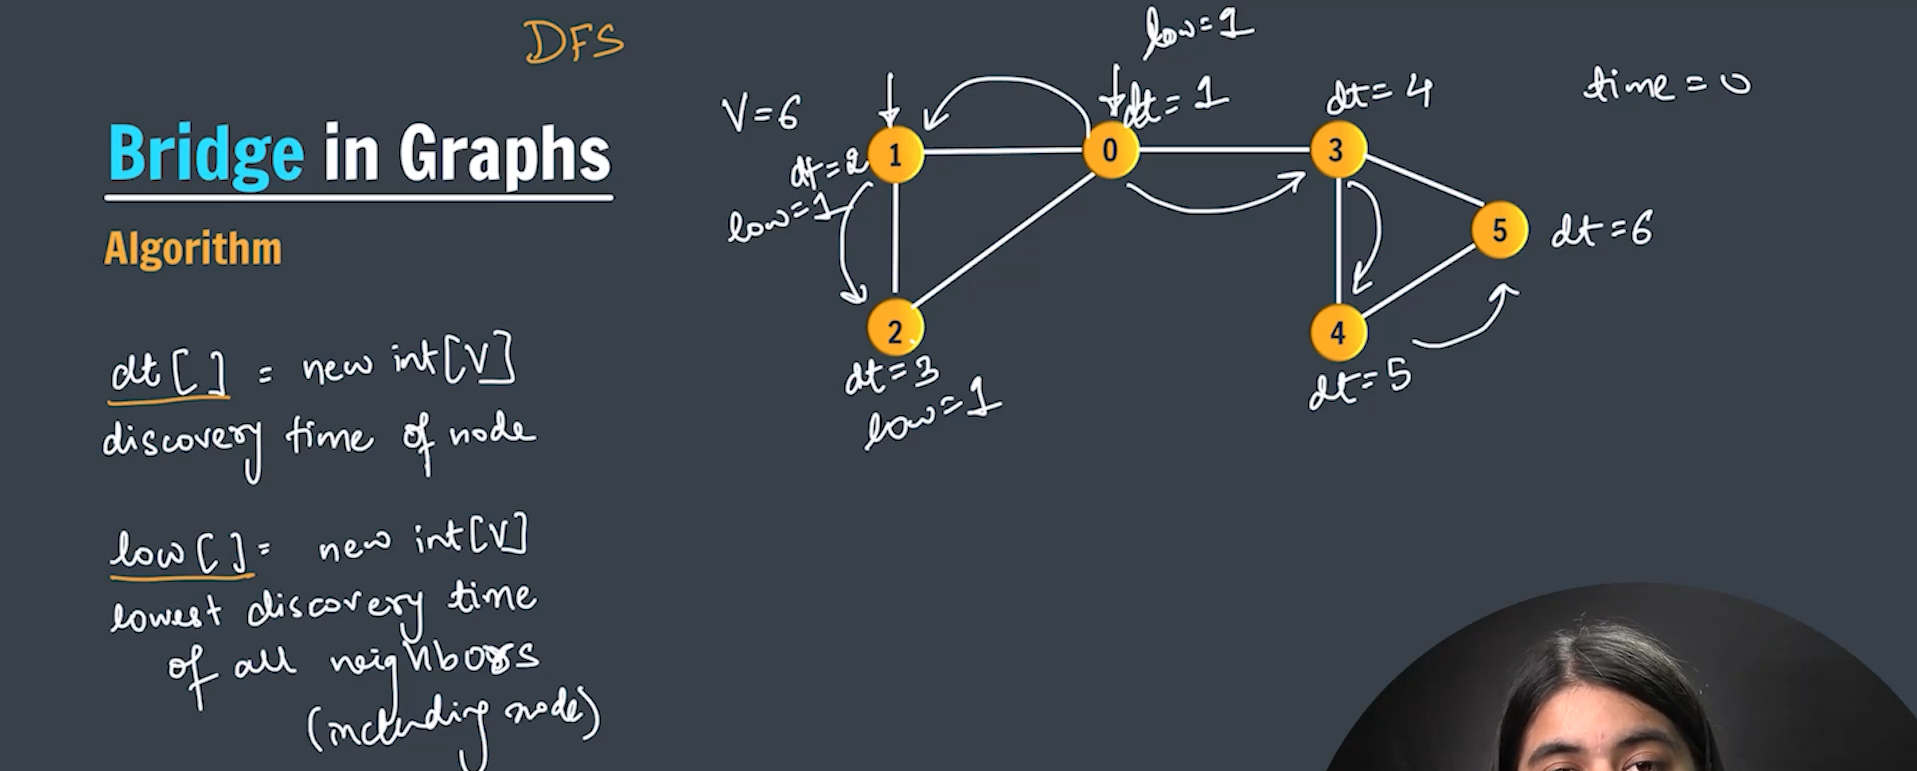 DFS
Bridge in Graphs
Algorithm
dt[ ] = new int[V]
discovery time of node
low[ ] = new int[V]
lowest discovery time
of all neighbors
(including node)
V=6
low=1
dt=1
dt=4
time=0
1
0
3
dt=2
low=1
5
dt=6
2
4
dt=3
low=1
dt=5